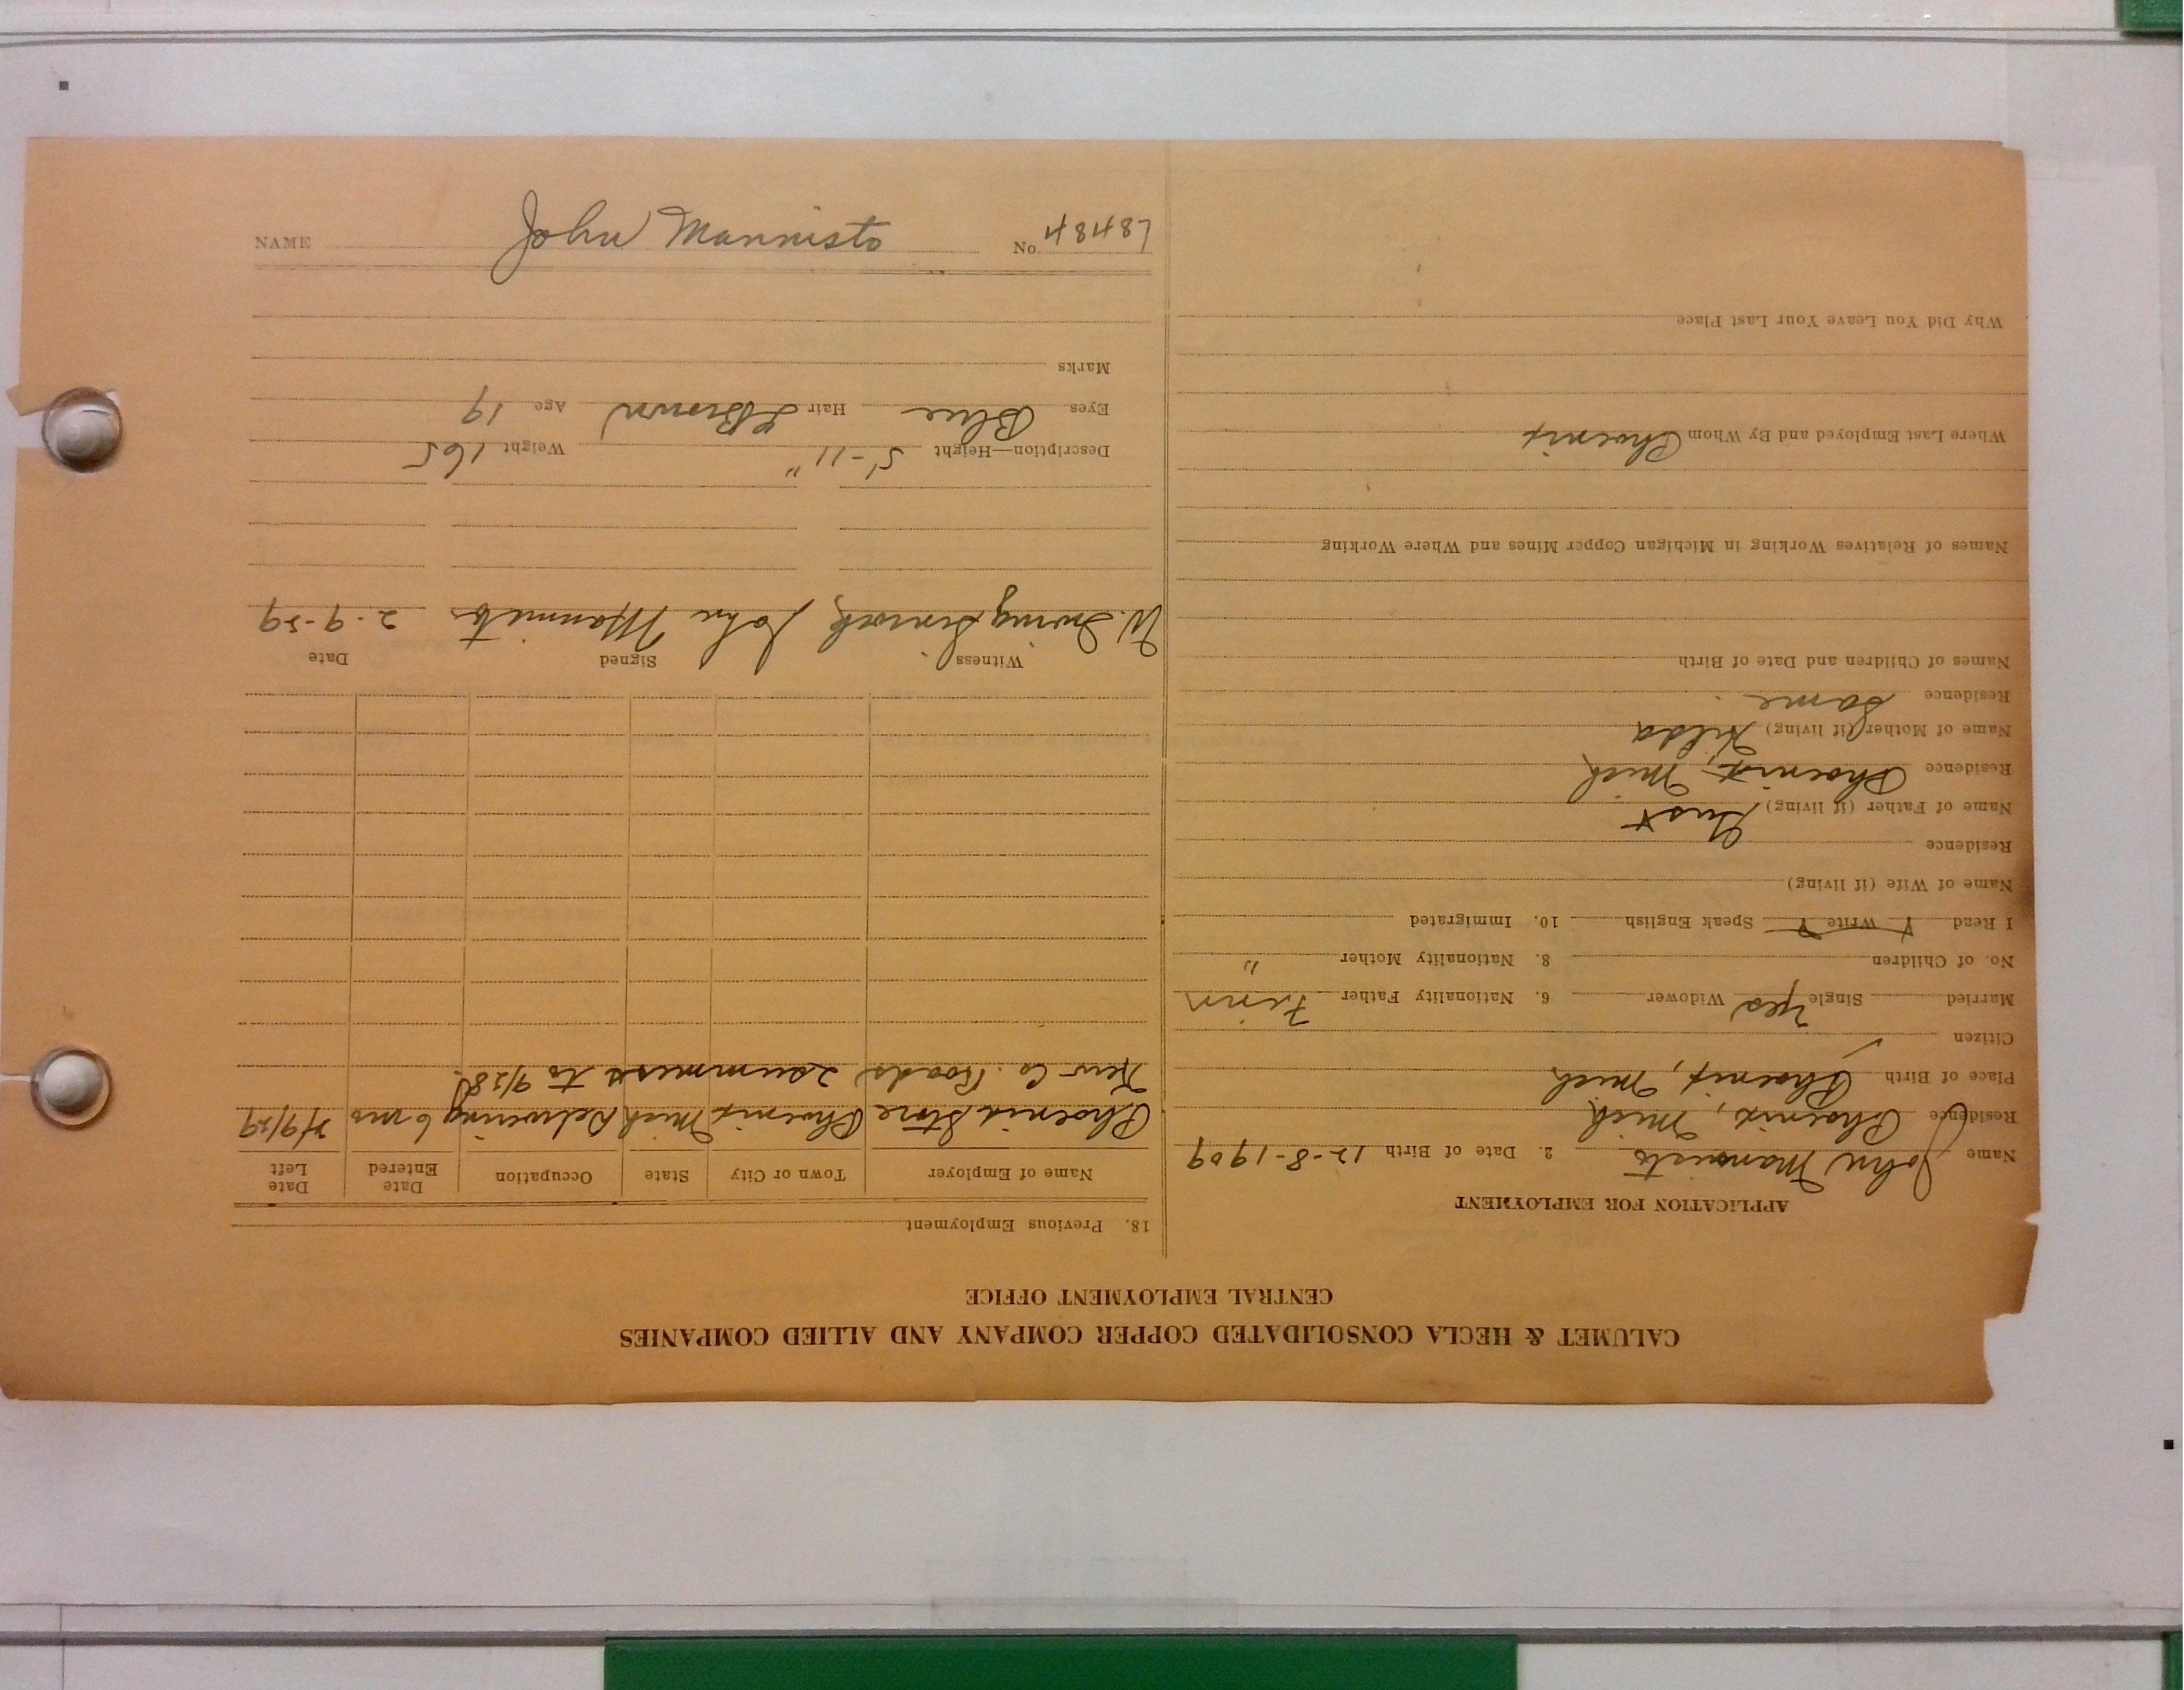 CALUMET & HECLA CONSOLIDATED COPPER COMPANY AND ALLIED COMPANIES
CENTRAL EMPLOYMENT OFFICE
APPLICATION FOR EMPLOYMENT
Name John Mannisto 2. Date of Birth 12-8-1909
Residence Phoenix, Mich
Place of Birth Phoenix, Mich
Citizen ✓
Married Single Yes Widower 6. Nationality Father Finn
No. of Children 8. Nationality Mother "
I Read Y Write Y Speak English 10. Immigrated
Name of Wife (if living)
Residence
Name of Father (if living) Gust
Residence Phoenix, Mich
Name of Mother (if living) Hilda
Residence Same
Names of Children and Date of Birth
Names of Relatives Working in Michigan Copper Mines and Where Working
Where Last Employed and By Whom Phoenix
Why Did You Leave Your Last Place
18. Previous Employment
Name of Employer Town or City State Occupation Date Entered Date Left
Phoenix Store Phoenix Mich Delivering 6 mo 2/9/29
Kew Co. Roads 2 summers to 9/28
Witness Signed Date
W. Irving John Mannisto 2-9-29
Description—Height 5'-11" Weight 165
Eyes Blue Hair L Brown Age 19
Marks
NAME John Mannisto No. 48487